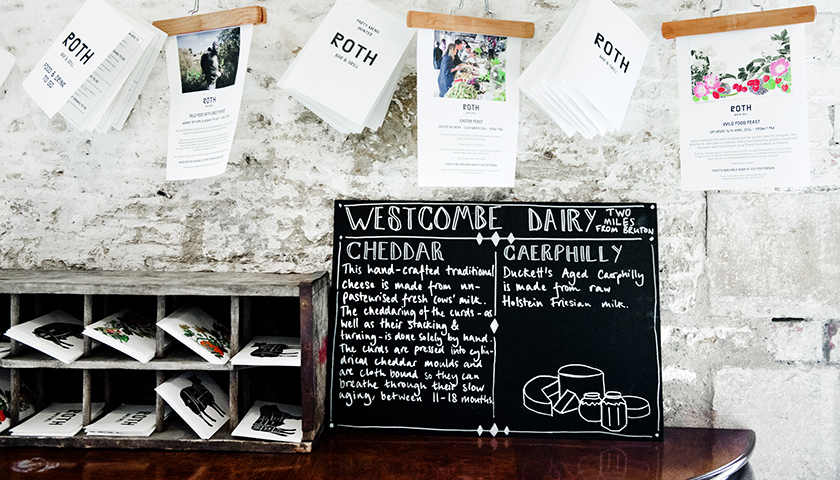 ROTH
BAR & GRILL
FOOD & DRINK
TO GO
ROTH
PARTY MENU
WINTER
ROTH
BAR & GRILL
ROTH
EASTER FEAST
ROTH
BAR & GRILL
ROTH
WILD FOOD FEAST
WESTCOMBE DAIRY TWO
MILES
FROM BRUTON
CHEDDAR
This hand-crafted traditional
cheese is made from un-
pasteurised fresh 'cows' milk.
The cheddaring of the curds - as
well as their stacking &
turning - is done solely by hand.
The curds are pressed into cylin-
drical cheddar moulds and
are cloth bound so they can
breathe through their slow
aging, between 11-18 months.
CAERPHILLY
Duckett's Aged Caerphilly
is made from raw
Holstein Frissian milk.
ROTH
ROTH